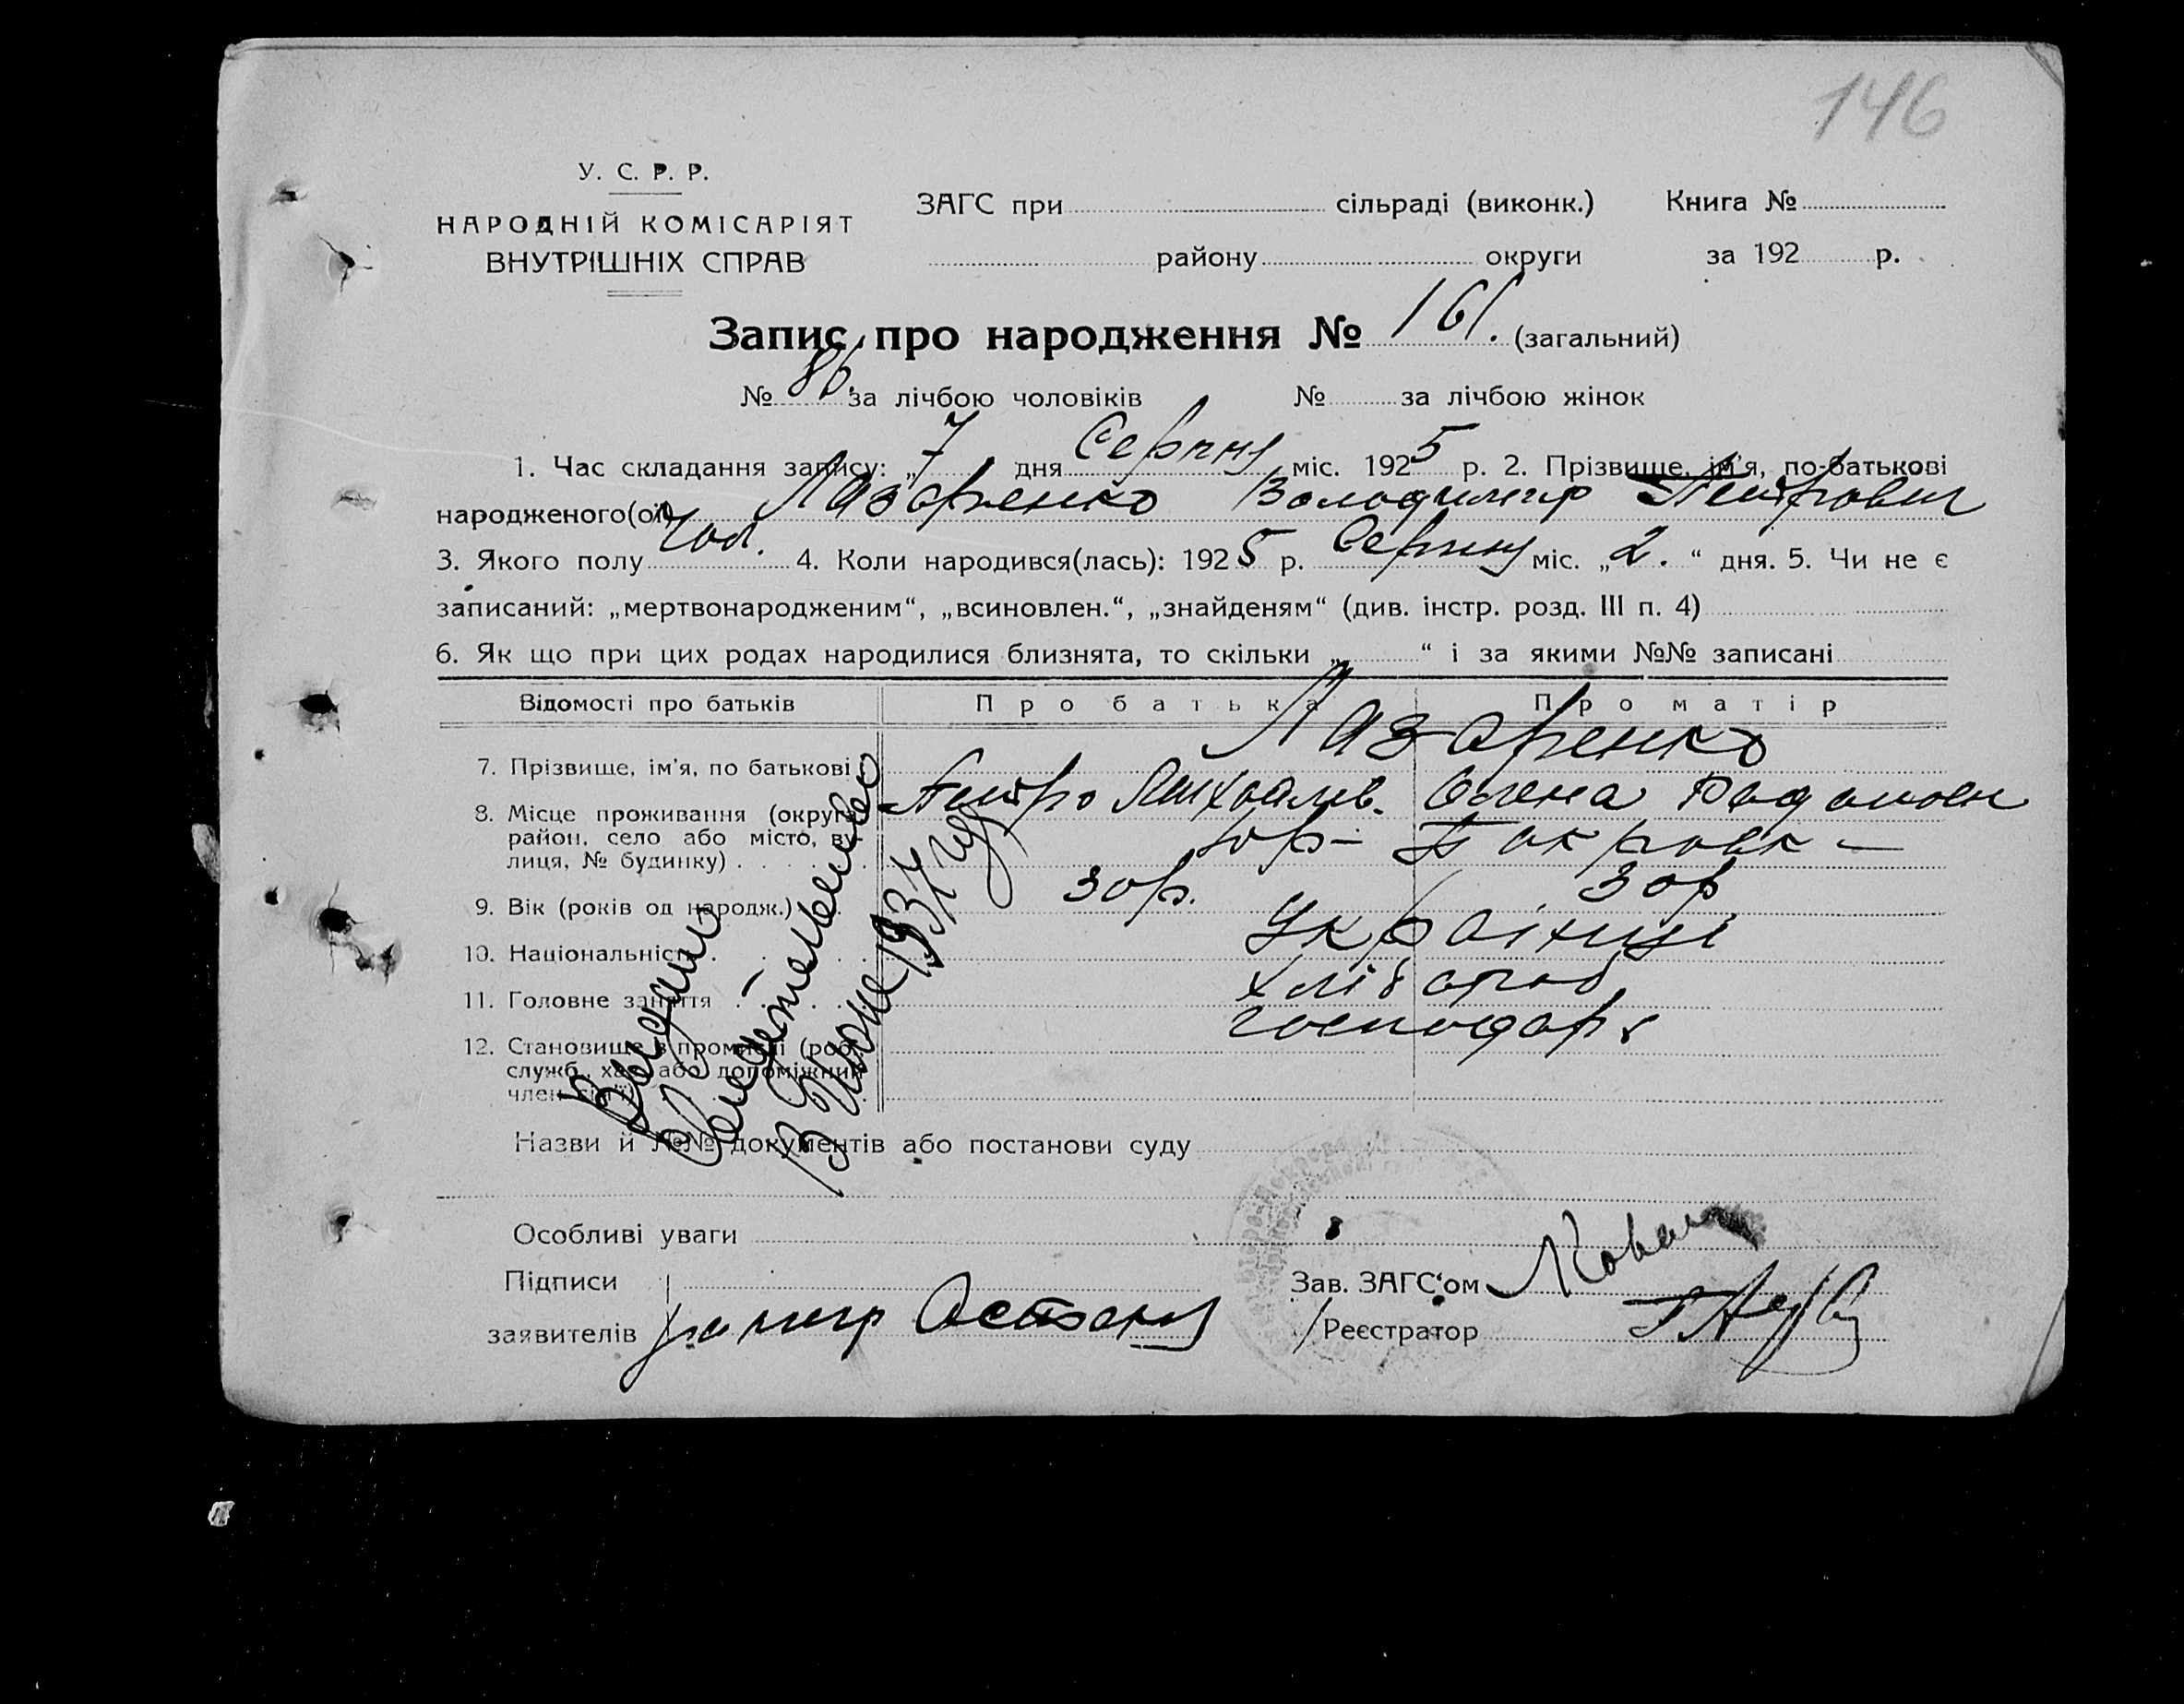 146
У. С. Р. Р.
НАРОДНІЙ КОМІСАРІЯТ
ВНУТРІШНІХ СПРАВ
ЗАГС при сільраді (виконк.) Книга №
району округи за 192 р.
Запис про народження № 161. (загальний)
№ 86. за лічбою чоловіків № за лічбою жінок
1. Час складання запису: „7 дня Серпня міс. 1925 р. 2. Прізвище, ім'я, по-батькові
народженого(ої) Лазаренко Володимир Петрович
3. Якого полу чол. 4. Коли народився(лась): 1925 р. Серпня міс. „2. “ дня. 5. Чи не є
записаний: „мертвонародженим“, „всиновлен.“, „знайденям“ (див. інстр. розд. III п. 4)
6. Як що при цих родах народилися близнята, то скільки „ “ і за якими №№ записані
Відомості про батьків Про батька Про матір
7. Прізвище, ім'я, по батькові Лазаренко
Петро Михайлів. Олена
8. Місце проживання (округа,
район, село або місто, ву-
лиця, № будинку)
9. Вік (років од народж.) 30 р. 30 р
10. Національність Українці
11. Головне заняття хлібороб
12. Становище в промислі (роб., господарь
служб., хаз. або допоміжний
член сім'ї)
Выдано
Свидетельство
В Июне 1937 году
Назви й №№ документів або постанови суду
Особливі уваги
Підписи Зав. ЗАГС'ом
заявителів Реєстратор